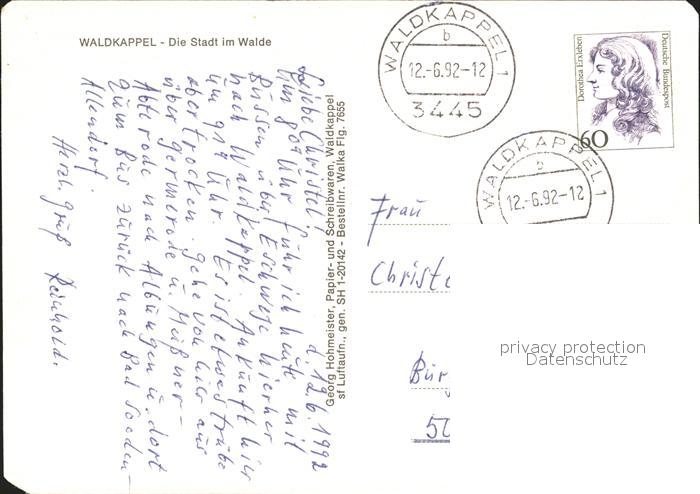 WALDKAPPEL - Die Stadt im Walde
d. 12.6.1992
Liebe Christel!
Um 807 Uhr fuhr ich heute mit
Bussen über Eschwege hierher
nach Waldkappel. Ankunft hier
um 917 Uhr. Es ist etwas trübe
aber trocken. Gehe von hier aus
über Germerode u. Meißner-
Abterode nach Albungen u. dort
zum Bus zurück nach Bad Sooden-
Allendorf.
Herzl. Grüß Reinhold.
Georg Hohmeister, Papier- und Schreibwaren, Waldkappel
sf Luftaufn., gen. SH 1-20142 - Bestellnr. Walka Flg. 7655
WALDKAPPEL 1
b
12.-6.92-12
3445
WALDKAPPEL 1
b
12.-6.92-12
Dorothea Erxleben
Deutsche Bundespost
60
Frau
Christe
Bürg
50
privacy protection
Datenschutz